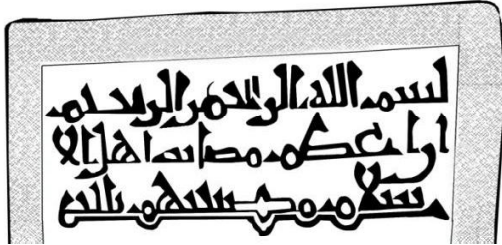 بسم الله الرحمن الرحيم
ان اعظم مصائب اهل الا
سلام مصيبتهم بالنبي